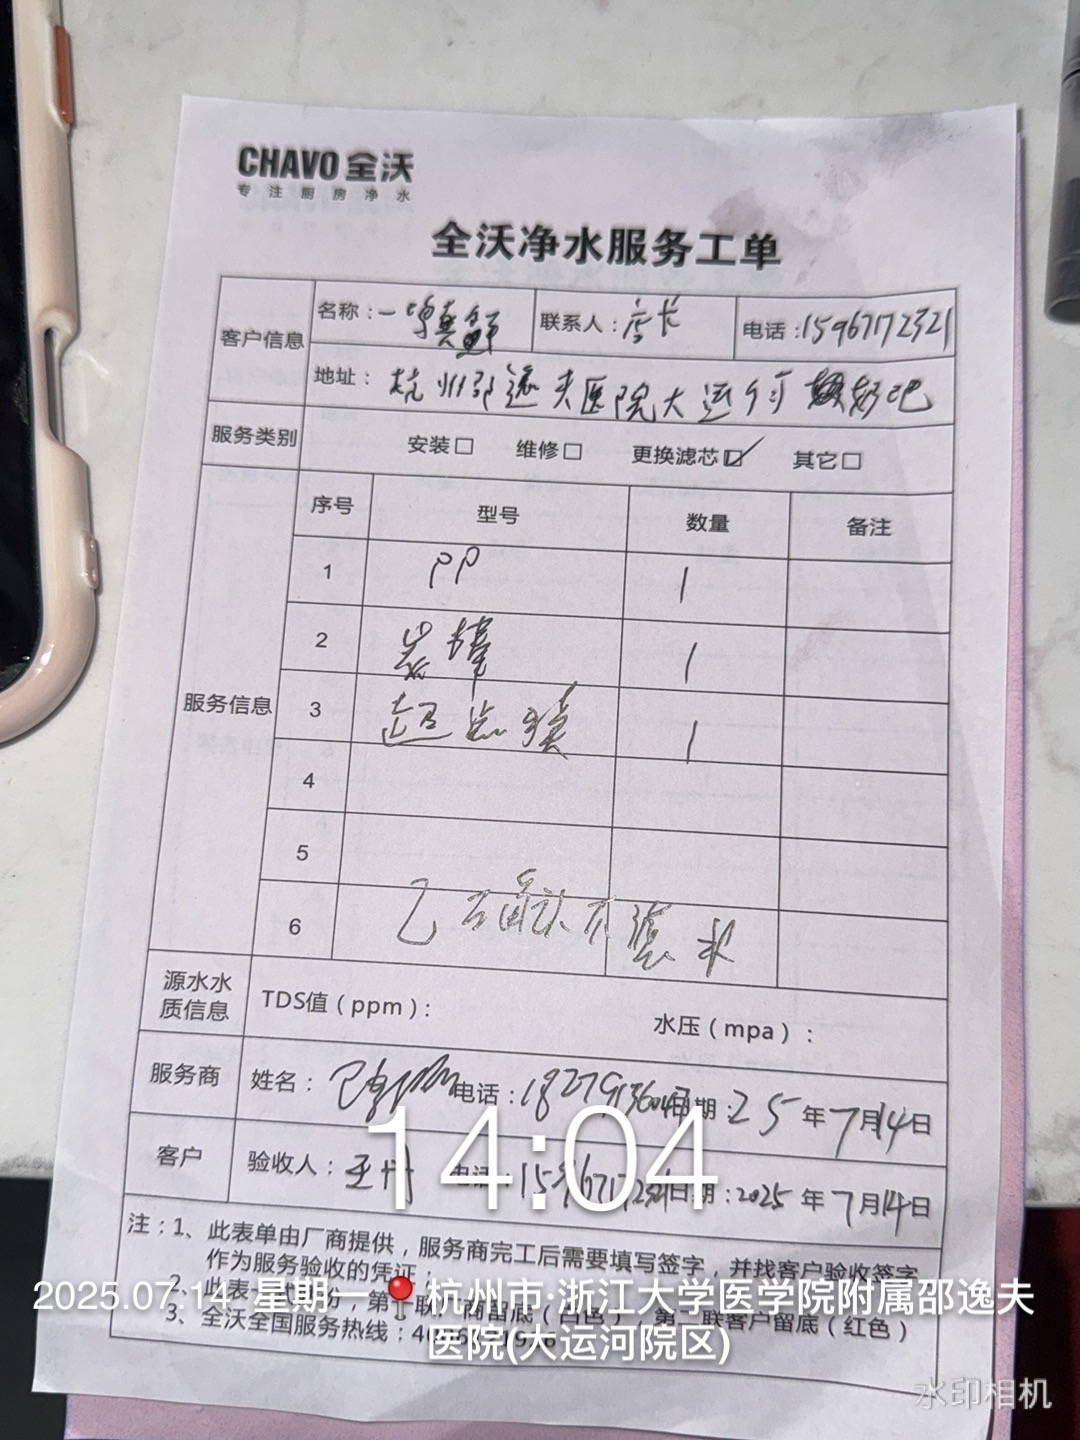 CHAVO 全沃
专注厨房净水
全沃净水服务工单
客户信息
名称：一鸣真鲜 联系人：店长 电话：15967172321
地址：杭州邵逸夫医院大运河 吧
服务类别 安装□ 维修□ 更换滤芯☑ 其它□
服务信息
序号 型号 数量 备注
1 PP 1
2 炭棒 1
3 超滤膜 1
4
5
6 已 水
源水水质信息 TDS值（ppm）： 水压（mpa）：
服务商 姓名： 电话： 日期：25年7月14日
客户 验收人：王丹 电话：15967172321 日期：2025年7月14日
注：1、此表单由厂商提供，服务商完工后需要填写签字，并找客户验收签字
作为服务验收的凭证；
2、此表 份，第一联厂商留底（白色），第二联客户留底（红色）
3、全沃全国服务热线：
14:04
2025.07.14 星期一 杭州市·浙江大学医学院附属邵逸夫
医院(大运河院区)
水印相机